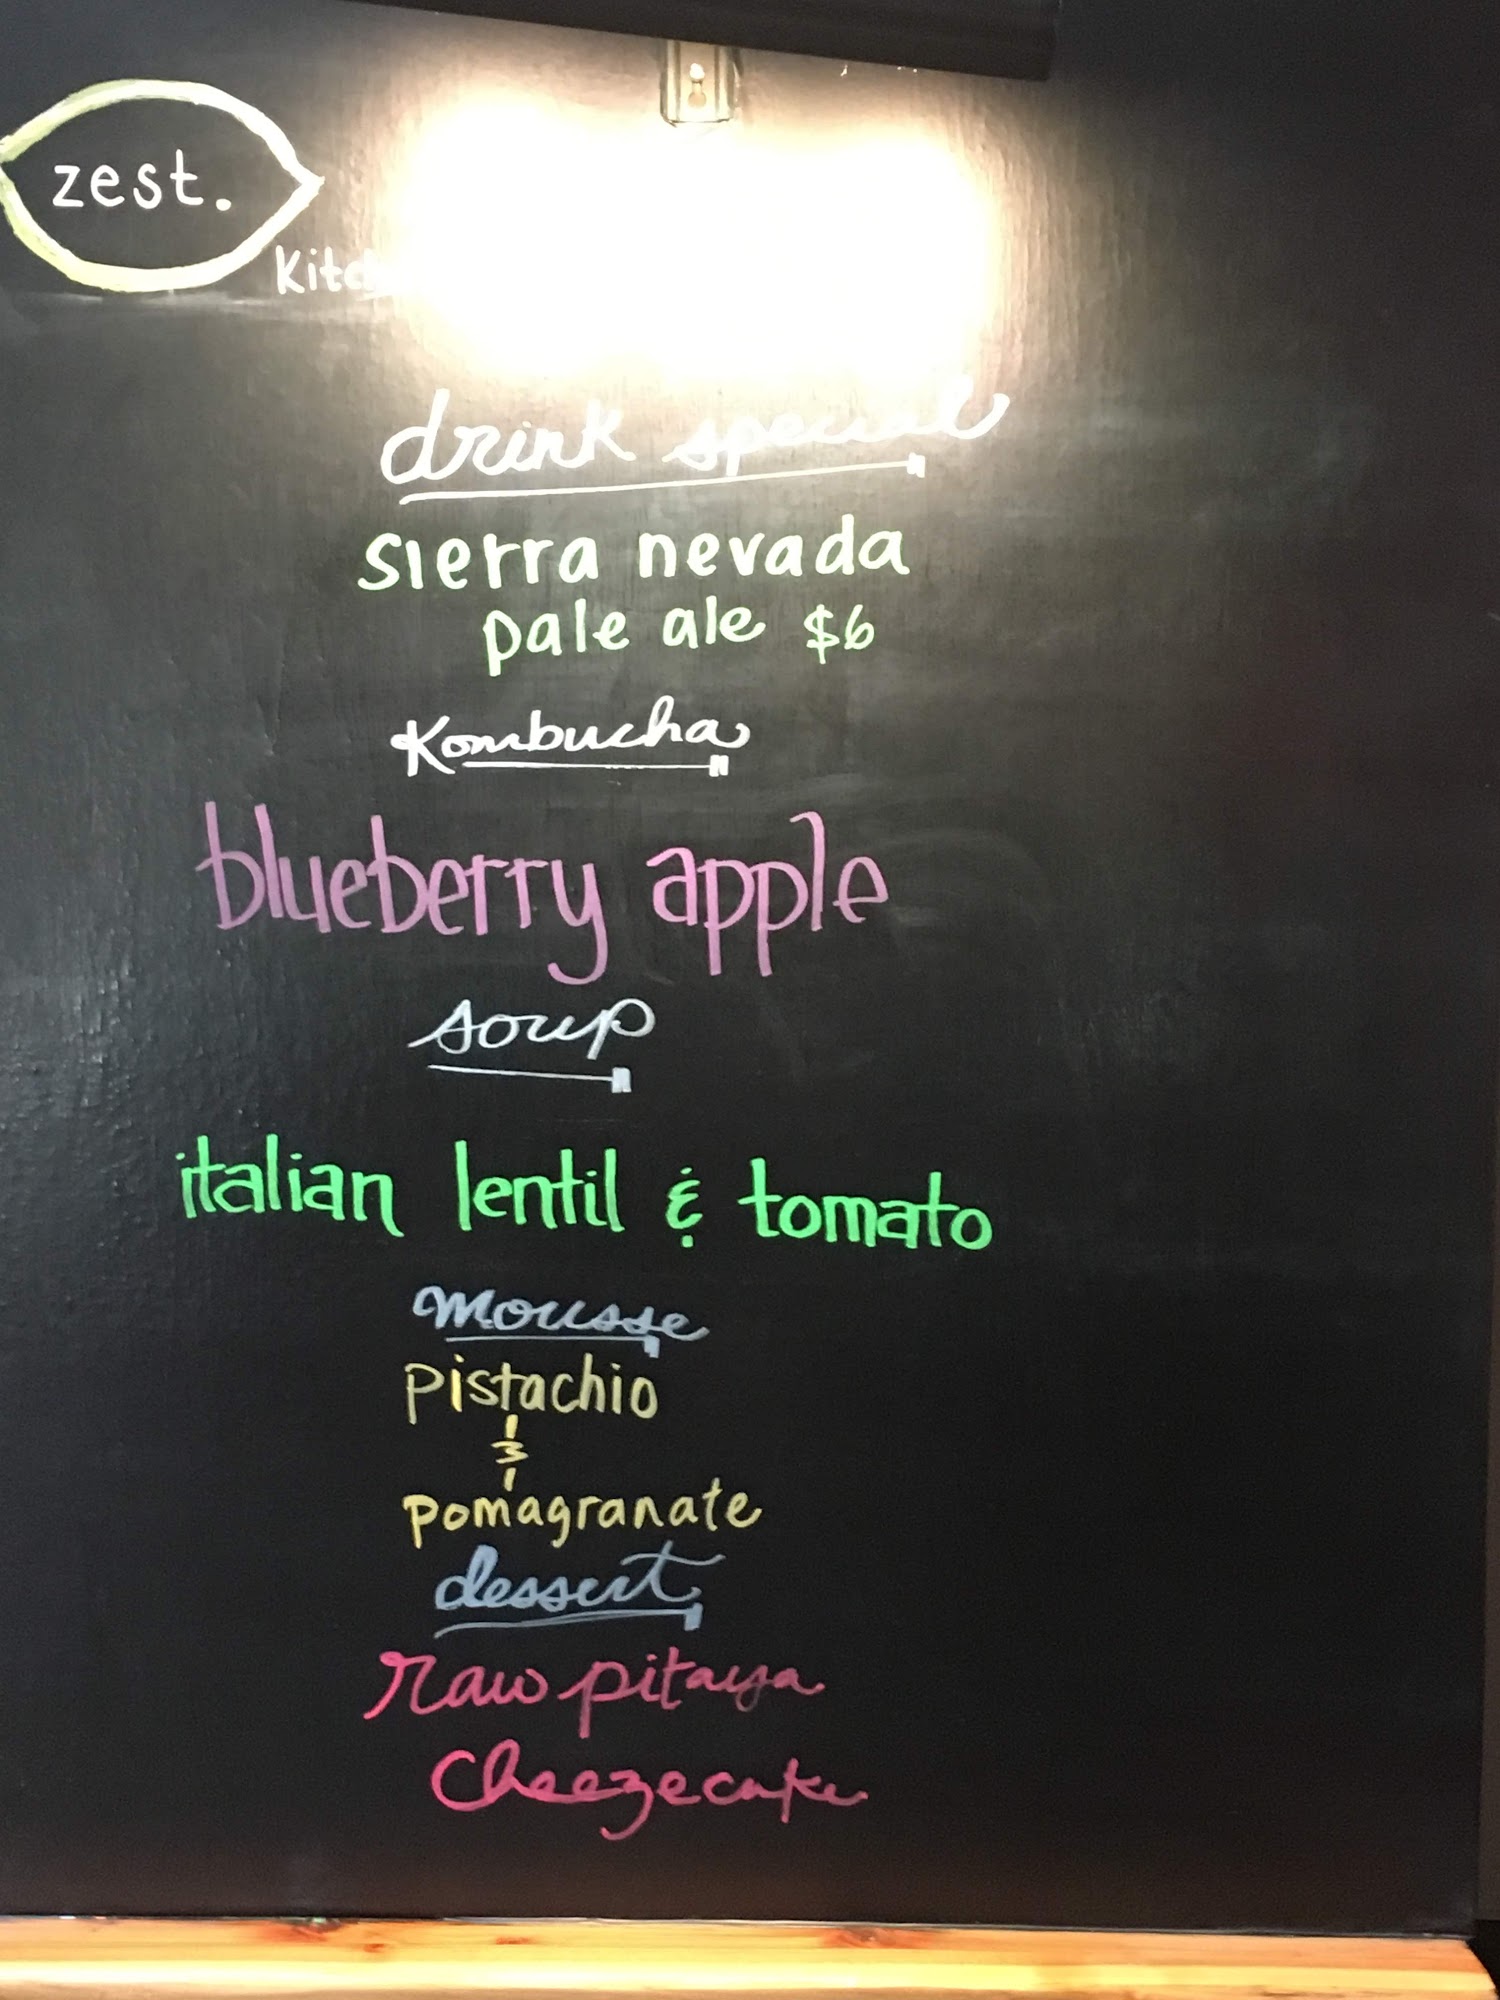 zest.
drink special
sierra nevada
pale ale $6
Kombucha
blueberry apple
soup
italian lentil & tomato
mousse
pistachio
&
pomagranate
dessert
raw pitaya
Cheezecake